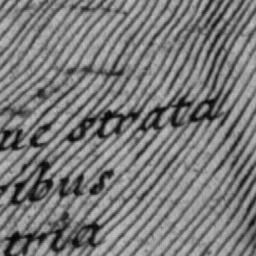 ue strata
ribus
tria